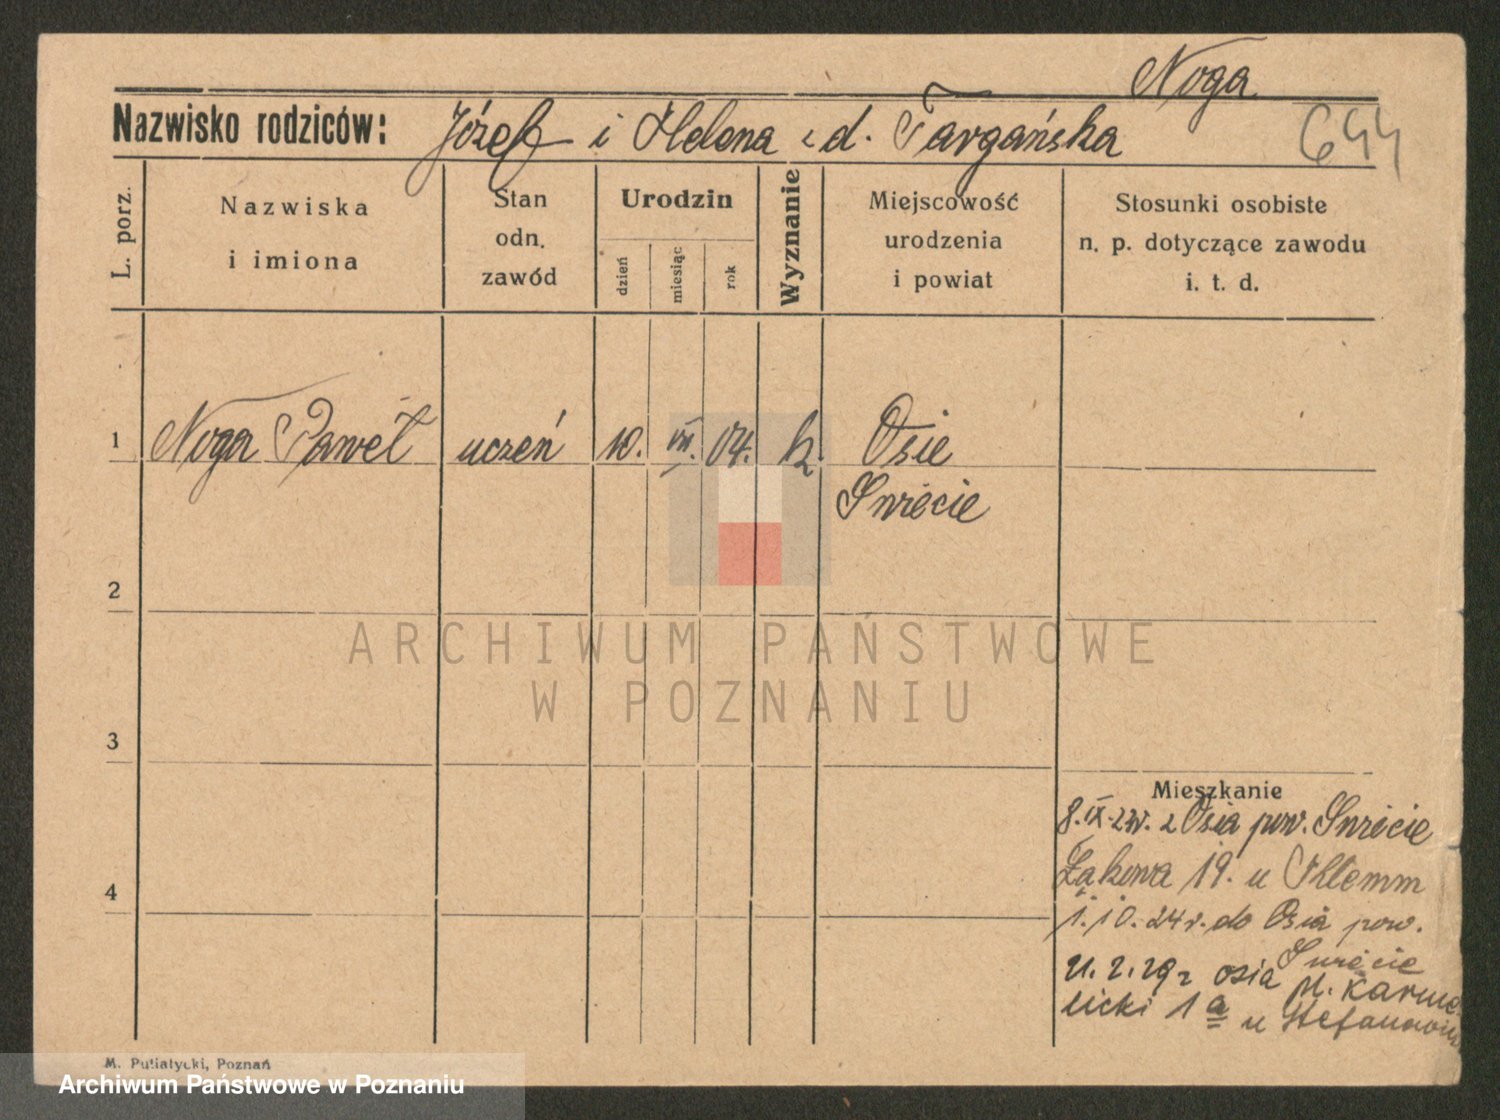 Noga
Nazwisko rodziców: Józef i Helena z d. Targańska
644
L. porz.
Nazwiska
i imiona
Stan
odn.
zawód
Urodzin
dzień
miesiąc
rok
Wyznanie
Miejscowość
urodzenia
i powiat
Stosunki osobiste
n. p. dotyczące zawodu
i. t. d.
1 Noga Paweł uczeń 10. VII. 04. k. Osie
Świecie
2
ARCHIWUM PAŃSTWOWE
W POZNANIU
3
Mieszkanie
8.IX. z Osia pow. Świecie
4
Łąkowa 19. u Klemm
1.10.24 r. do Osia pow.
Świecie
21.2.29 r Osia pl. Karme-
licki 1a u Stefanowicz
M. Putiatycki, Poznań
Archiwum Państwowe w Poznaniu